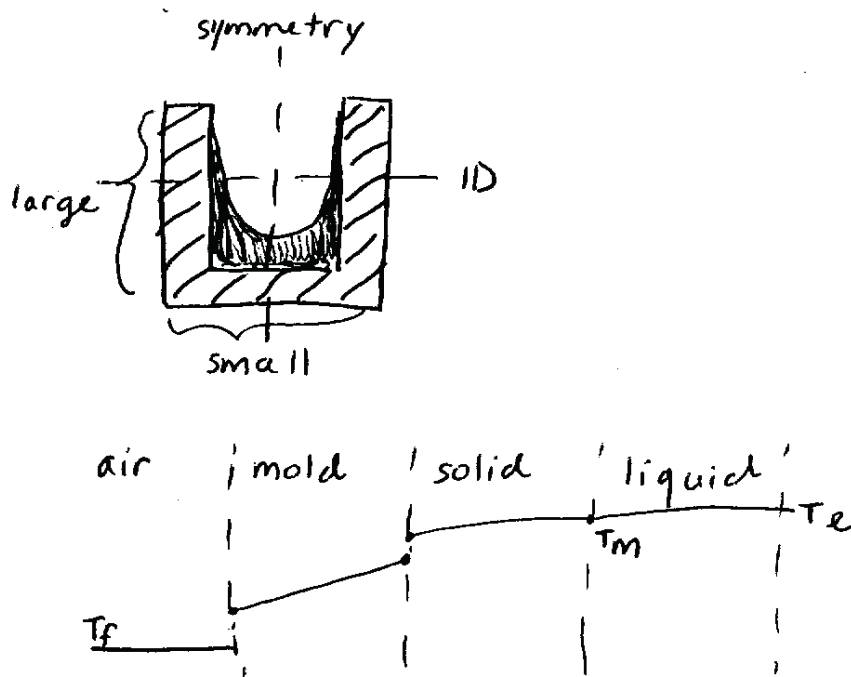 symmetry
large
1D
small
air mold solid liquid
Tf Tm Te